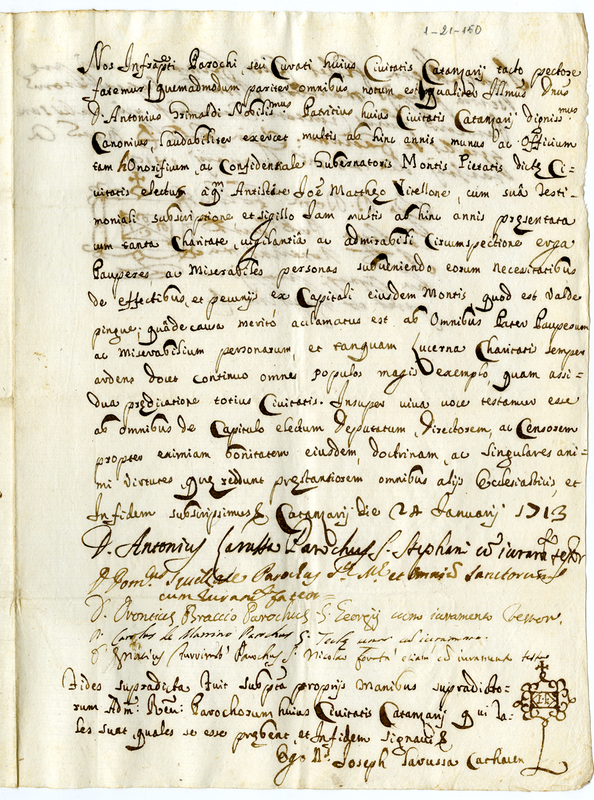 1-21-150
Nos Infra~pti Parochi, seu Curati huius Civitatis Catanzarij tacto pectore
fatemur, quemadmodum pariter omnibus notum est qualiter Illmus Dnus
D. Antonius Grimaldi Nobilis Patricius huius Civitatis Catanzarij dignismus
Canonicus, laudabiliter exercet multis ab hinc annis munus ac Officium
tam hOnorificum ac Confidentiale Gubernatoris Montis Pietatis dictę Ci-
vitatis electus Antistite Joe Mattheo Vitellone, cum suâ Testi-
moniali subscriptione et sigillo Jam multis ab hinc annis pręsentata
cum tanta Charitate, vigilantiâ ac admirabili Circumspectione erga
Pauperes, ac Miserabiles personas subveniendo eorum necesitatibus
de effectibus, et pecunijs ex Capitali eiusdem Montis, quod est valde
pingue; quâ de causa meritò acclamatus est ab Omnibus Pater Pauperum
ac Miserabilium personarum, et tanquam Lucerna Charitatis semper
ardens docet continuo omnes populos magis exemplo, quam assi-
dua prędicatione totius Civitatis. Insuper viva voce testamur esse
ab omnibus de Capitulo electum Deputatum, Directorem, ac Censorem
propter eximiam bonitatem eiusdem, doctrinam, ac singulares ani-
mi Virtutes quę reddunt pręstantiorem omnibus alijs Ecclesiasticis, et
In fidem subscripsimus Catanzarij die 28 Januarij 1713
D. Antonius Parochus S. Stephani testor
Parochus et omniū sanctorum
cum fateor
D. Orontius Braccio Parochus S. Georgij cum iuramento testor.
Parochus S.
Parochus S. Nicolai etiam cū iuramento testor
Fides supradicta fuit subpta proprijs Manibus supradicto-
rum Adm: Reu: Parochorum huius Civitatis Catanzarij qui ta-
les sunt, quales se esse prębent, et In fidem signavi
Ego Joseph